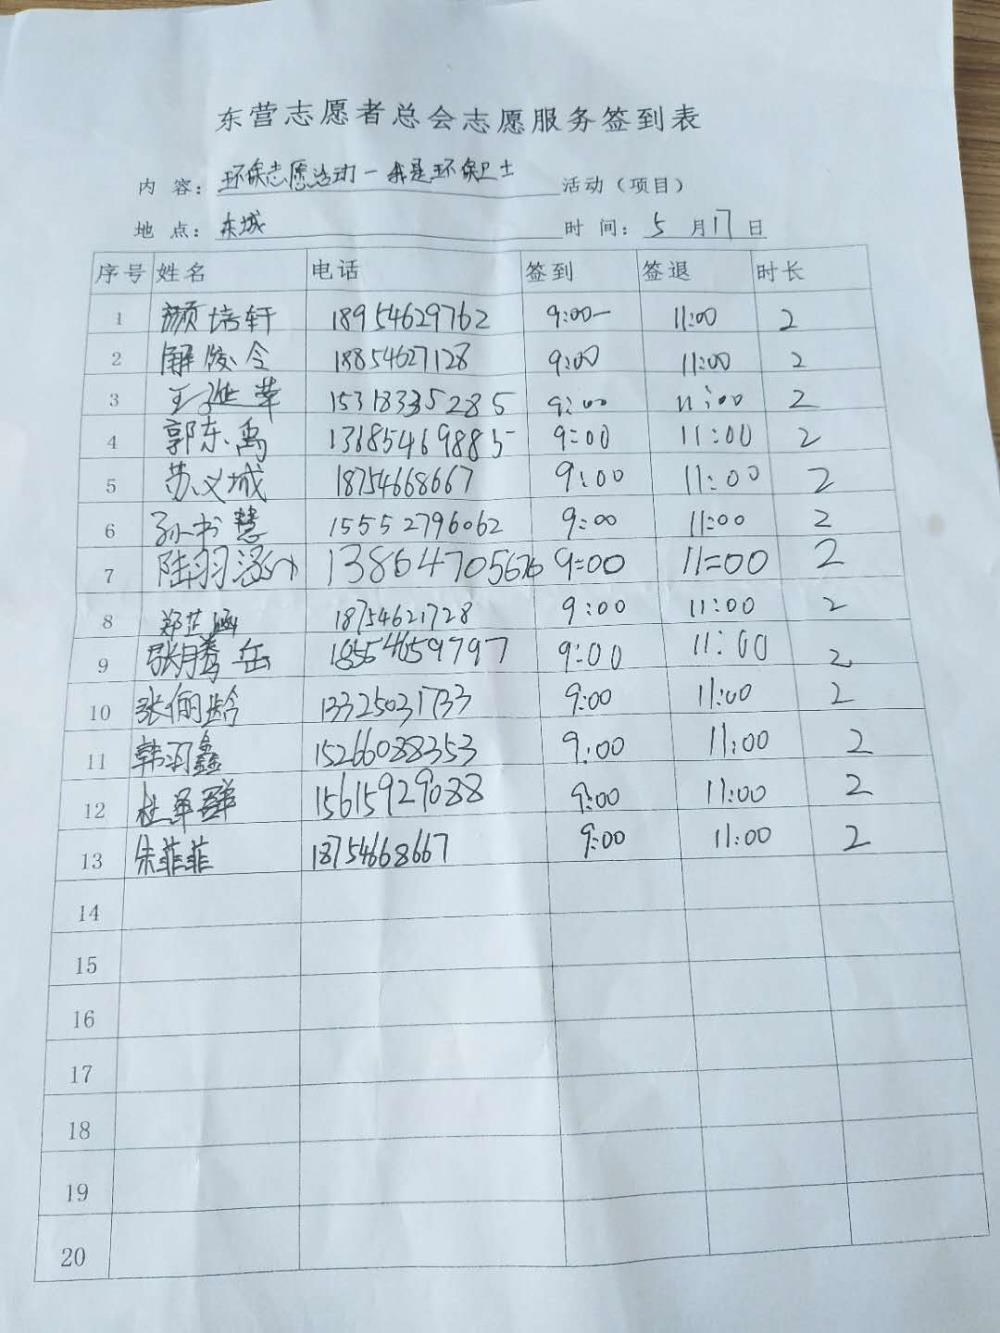 东营志愿者总会志愿服务签到表
内 容：环保志愿活动一我是环保卫士 活动（项目）
地 点：东城 时 间：5 月 17 日
序号 姓名 电话 签到 签退 时长
1 颜培轩 18954629762 9:00 11:00 2
2 解 令 18854627128 9:00 11:00 2
3 王延苹 15318335285 9:00 11:00 2
4 郭东禹 13685469885 9:00 11:00 2
5 苏义城 18754668667 9:00 11:00 2
6 孙书慧 15552796062 9:00 11:00 2
7 陆羽涵 9:00 11:00 2
8 郑芷涵 18754621728 9:00 11:00 2
9 张腾岳 18554659797 9:00 11:00 2
10 张俪龄 13325031733 9:00 11:00 2
11 韩羽鑫 15266088353 9:00 11:00 2
12 杜军群 15615929088 9:00 11:00 2
13 朱菲菲 18754668667 9:00 11:00 2
14
15
16
17
18
19
20